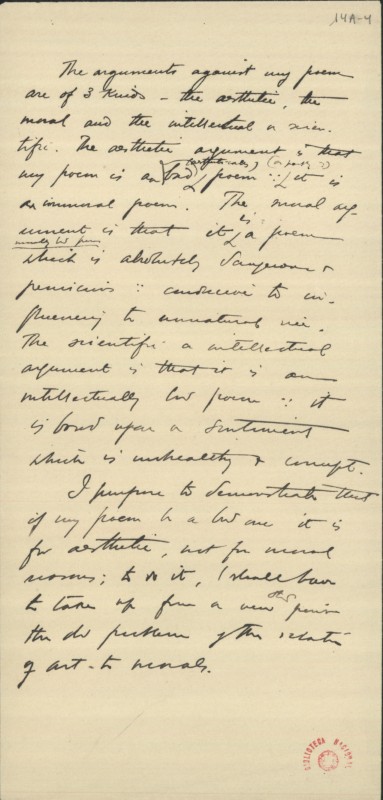 14A-4
The arguments against my poem
are of 3 kinds - the aesthetic, the
moral and the intellectual or scien-
tific. The aesthetic argument is that
my poem is a bad (aesthetically) poem ∵ it is
an immoral poem. The moral arg-
ument is that it is a poem
morally bad poem
which is absolutely dangerous &
pernicious ∵ conducive to in-
fluencing to unnatural vice.
The scientific or intellectual
argument is that it is an
intellectually bad poem ∵ it
is based upon a sentiment
which is unhealthy & corrupt.
I purpose to demonstrate that
if my poem be a bad one it is
for aesthetic, not for moral
reasons; to do it, I shall have
to take up from a new
the old problem of the relation
of art to morals.
BIBLIOTECA NACIONAL